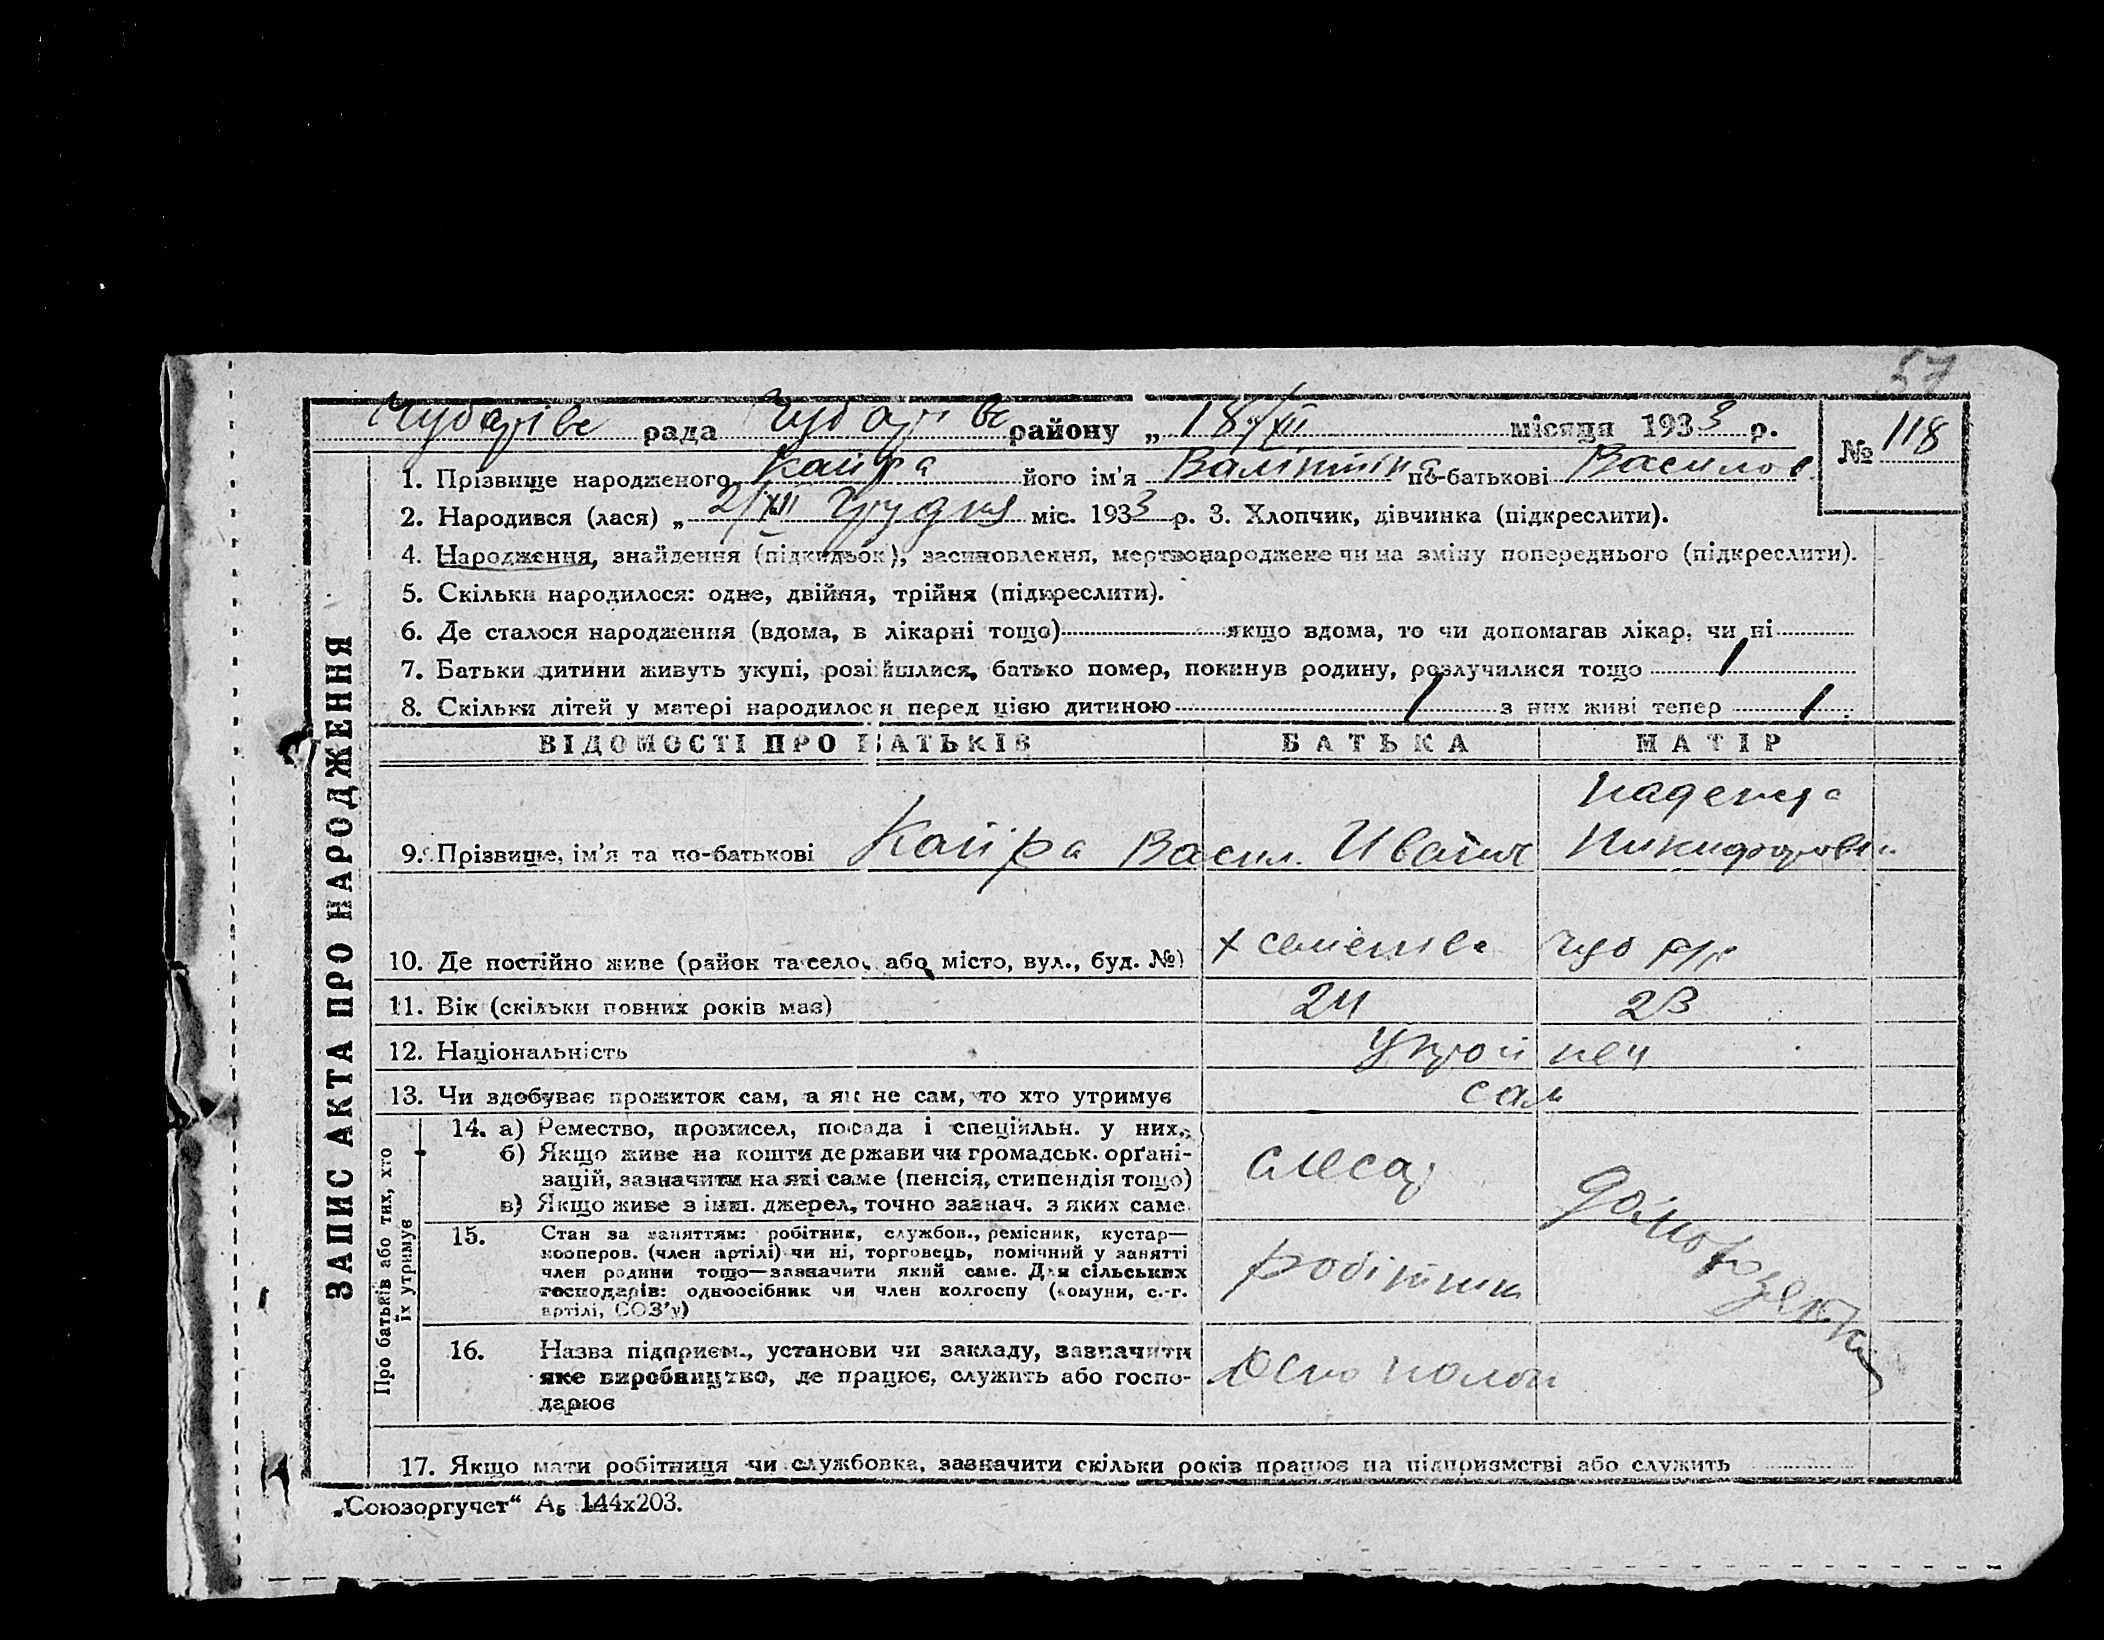 57
Чубарівс рада Чубарівс району „ 18/XII місяця 1933 р. № 118
1. Прізвище народженого Кайра його ім'я Валінтіна по-батькові Васило
2. Народився (лася) „ 2/XII грудня міс. 1933 р. 3. Хлопчик, дівчинка (підкреслити).
4. Народження, знайдення (підкидьок), засиновлення, мертвонароджене чи на зміну попереднього (підкреслити).
5. Скільки народилося: одне, двійня, трійня (підкреслити).
6. Де сталося народження (вдома, в лікарні тощо) якщо вдома, то чи допомагав лікар, чи ні
7. Батьки дитини живуть укупі, розійшлися, батько помер, покинув родину, розлучилися тощо 1
8. Скільки дітей у матері народилося перед цією дитиною 1 з них живі тепер 1
ВІДОМОСТІ ПРО БАТЬКІВ БАТЬКА МАТІР
9. Прізвище, ім'я та по-батькові Кайра Васил. Иванич Надежда Никифоровн
10. Де постійно живе (район та село, або місто, вул., буд. №) х Чуб
11. Вік (скільки повних років має) 24 23
12. Національність Украйнец
13. Чи здобуває прожиток сам, а як не сам, то хто утримує сам
Про батьків або тих, хто їх утримує
14. а) Ремество, промисел, посада і спеціяльн. у них,
б) Якщо живе на кошти держави чи громадськ. орґані-
зацій, зазначити на які саме (пенсія, стипендія тощо)
в) Якщо живе з інш. джерел, точно зазнач. з яких саме
слесар
15. Стан за заняттям: робітник, службов., ремісник, кустар—
кооперов. (член артілі) чи ні, торговець, помічний у занятті
член родини тощо—зазначити який саме. Для сільських
господарів: одноосібник чи член колгоспу (комуни, с.-г.
артілі, СОЗ'у)
робітник
16. Назва підприєм., установи чи закладу, зазначити
яке виробництво, де працює, служить або госпо-
дарює
17. Якщо мати робітниця чи службовка, зазначити скільки років працює на підприємстві або служить
ЗАПИС АКТА ПРО НАРОДЖЕННЯ
„Союзоргучет“ А₅ 144х203.